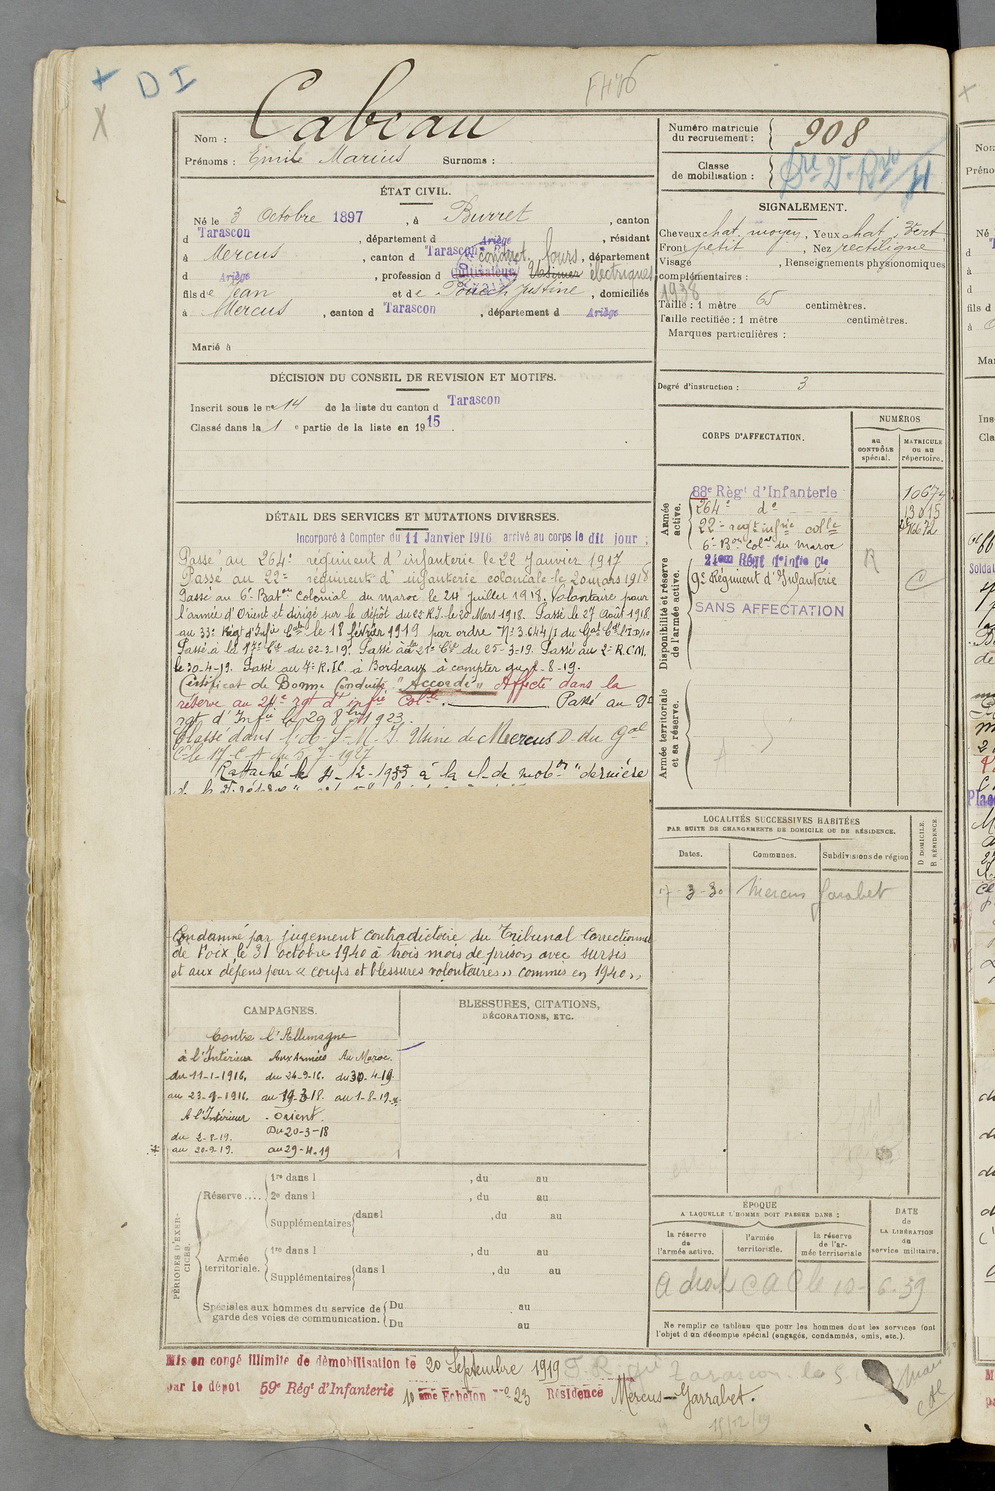 + D I
X
Nom : Cabeau
Prénoms : Emile Marius Surnoms :
Numéro matricule du recrutement : 908
Classe de mobilisation :
ÉTAT CIVIL.
Né le 3 Octobre 1897, à Burret, canton
d Tarascon, département d Ariège, résidant
à Mercus, canton d Tarascon, département
d Ariège, profession d cultivateur Usinier conduct. fours électriques
fils de Jean et de Pouech Justine, domiciliés
à Mercus, canton d Tarascon, département d Ariège
Marié à
SIGNALEMENT.
Cheveux chat. moyen, Yeux chat. vert
Front petit, Nez rectiligne
Visage , Renseignements physionomiques
complémentaires :
1938
Taille : 1 mètre 65 centimètres.
Taille rectifiée : 1 mètre centimètres.
Marques particulières :
Degré d'instruction : 3
DÉCISION DU CONSEIL DE REVISION ET MOTIFS.
Inscrit sous le n° 14 de la liste du canton d Tarascon
Classé dans la 1e partie de la liste en 1915
CORPS D'AFFECTATION.
NUMÉROS
au CONTRÔLE spécial.
MATRICULE ou au répertoire.
Armée active.
88e Régt d'Infanterie 10674
264e do 13015
22e regt infie colle
6e Bon Colal du maroc
Disponibilité et réserve de l'armée active.
21eme Régt d'Infie Cle
9e Régiment d'Infanterie
SANS AFFECTATION
R
C
Armée territoriale et sa réserve.
DÉTAIL DES SERVICES ET MUTATIONS DIVERSES.
Incorporé à Compter du 11 Janvier 1916 arrivé au corps le dit jour ;
Passé au 264e régiment d'infanterie le 22 Janvier 1917
Passé au 22e régiment d'infanterie coloniale le 20 mars 1918
Passé au 6e Baton colonial du maroc le 24 juillet 1918. Volontaire pour
l'armée d'Orient et dirigé sur le dépôt du 22 R.I. le 20 Mars 1918. Passé le 27 Août 1918
au 33e Régt d'Infie Cole le 18 février 1919 par ordre No 3.644/I du Gal
Passé à la 17e Cie du 22-3-19. Passé à la 21e Cie du 25-3-19. Passé au 2e R.I.C.M.
le 30-4-19. Passé au 4e R.I.C. à Bordeaux à compter du 2-8-19.
Certificat de Bonne Conduite "Accordé" Affecté dans la
réserve au 21e rgt d'infie Colle. Passé au 9e
rgt d'Infie le 29 8bre 1923.
Classé dans Usine de Mercus D. du Gal
Rattaché le 4-12-1933 à la cl. de mobon "dernière
Condamné par jugement contradictoire du Tribunal Correctionnel
de Foix, le 31 octobre 1940 à trois mois de prison avec sursis
et aux dépens pour « coups et blessures volontaires » commis en 1940.
LOCALITÉS SUCCESSIVES HABITÉES
PAR SUITE DE CHANGEMENTS DE DOMICILE OU DE RÉSIDENCE.
Dates. Communes. Subdivisions de région
D DOMICILE. R RÉSIDENCE.
7-3-30 Mercus Garabet
CAMPAGNES.
Contre l'Allemagne
à l'Intérieur Aux Armées Au Maroc
du 11-1-1916. du 24-9-16. du 30-4-19
au 23-9-1916. au 19-3-18. au 1-8-19.
A l'Intérieur - Orient.
du 2-8-19. Du 20-3-18
au 20-9-19. au 29-4-19
BLESSURES, CITATIONS,
DÉCORATIONS, ETC.
PÉRIODES D'EXERCICES.
Réserve....
1re dans l , du au
2e dans l , du au
Supplémentaires dans l , du au
Armée territoriale.
1re dans l , du au
Supplémentaires dans l , du au
Spéciales aux hommes du service de garde des voies de communication.
Du au
Du au
ÉPOQUE
A LAQUELLE L'HOMME DOIT PASSER DANS :
la réserve de l'armée active.
l'armée territoriale.
la réserve de l'armée territoriale
DATE de LA LIBÉRATION du service militaire.
A droit C A C le 10-6-39
Ne remplir ce tableau que pour les hommes dont les services font
l'objet d'un décompte spécial (engagés, condamnés, omis, etc.).
Mis en congé illimité de démobilisation le 20 Septembre 1919
par le dépôt 59e Régt d'Infanterie 10eme Echelon no 23 Résidence Mercus-Garrabet.